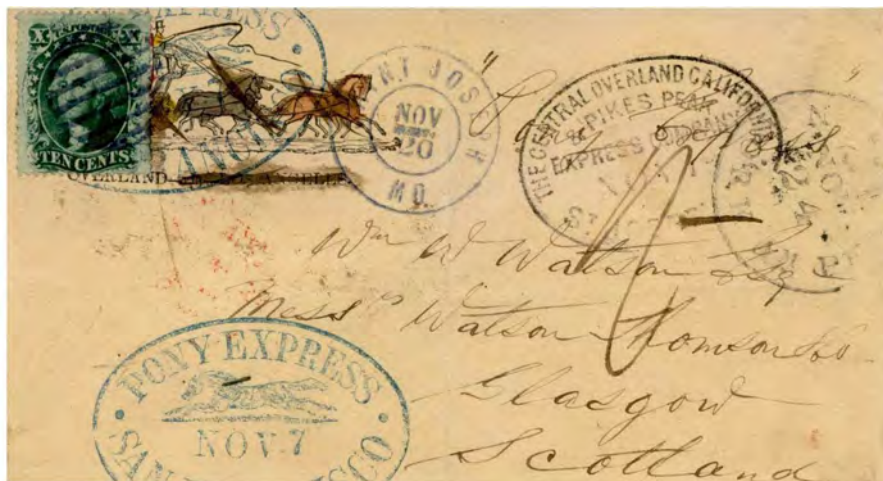 X U.S. POSTAGE X
TEN CENTS
EXPRESS
ANG
OVERLAND
NT JOSEPH
NOV
20
MO.
THE CENTRAL OVERLAND CALIFORNIA
PIKES PEAK
EXPRESS COMPANY
ST
NOV
24
"
"
Wm W Watson Esq
Messrs Watson Thomson & Co
Glasgow
Scotland
PONY EXPRESS
NOV. 7
SAN
SCO